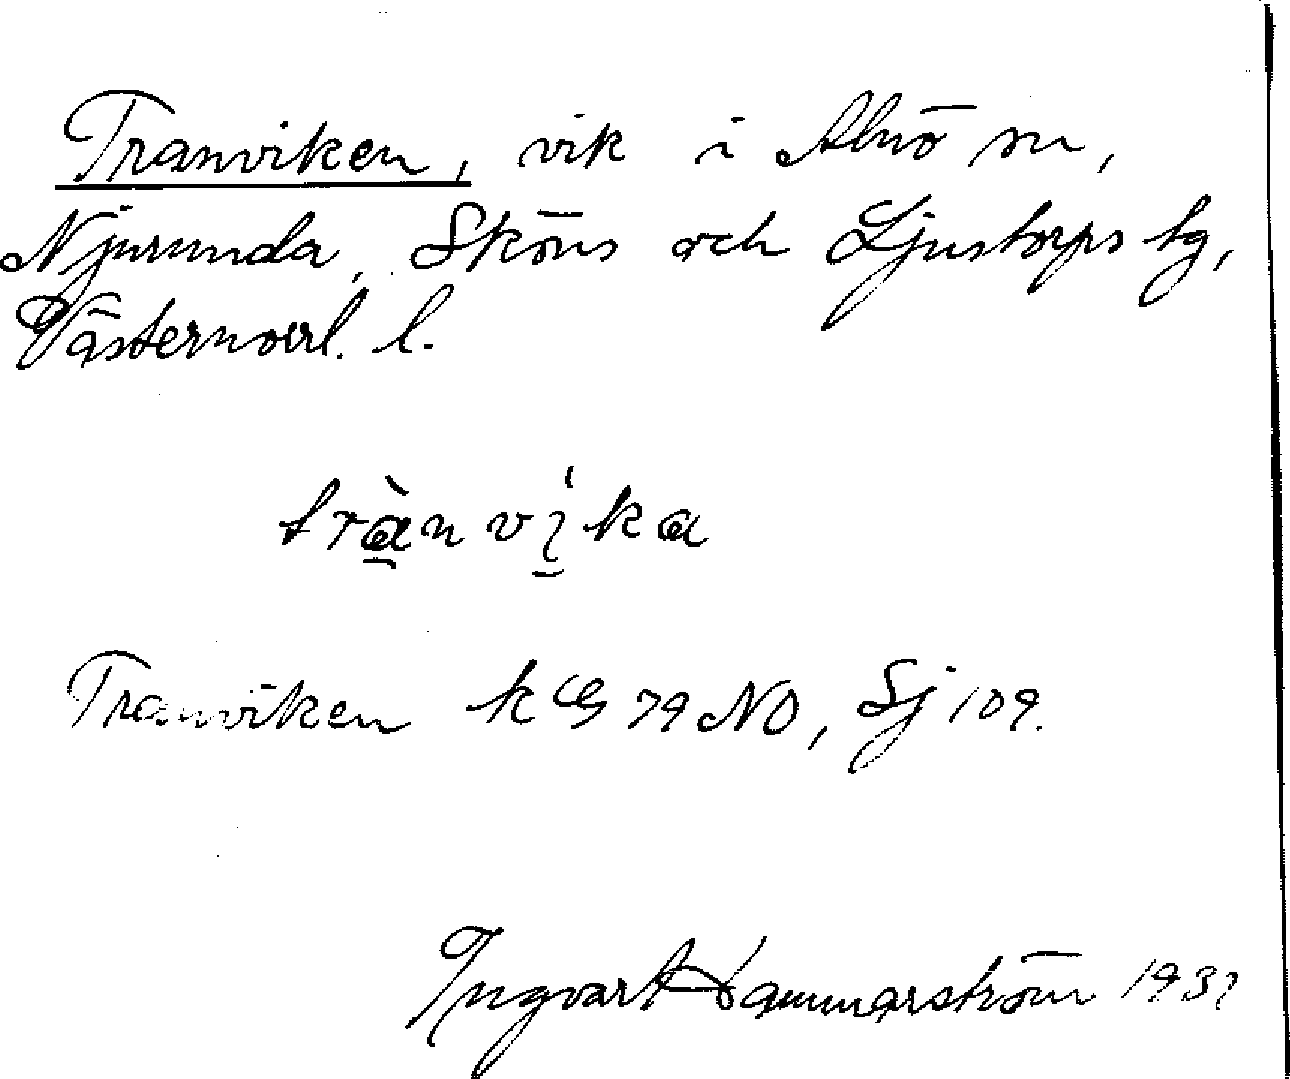 Tranviken, vik i Alnö sn,
Njurunda, Sköns och Ljustorps tg,
Västernorrl. l.
trànvi̱ka
Tranviken k G 79 NO, Sj 109.
Ingvart Hammarström 1931